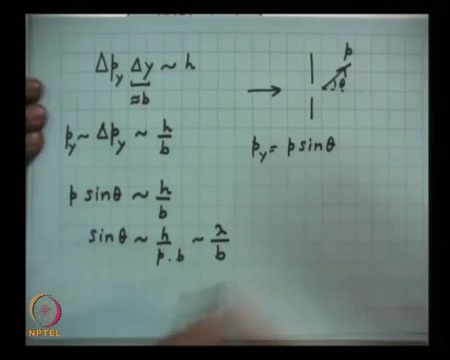 Δp_y Δy ~ h
≈b
p_y ~ Δp_y ~ h/b
p sinθ ~ h/b
sinθ ~ h/p.b ~ λ/b
p
θ
p_y = p sinθ
NPTEL